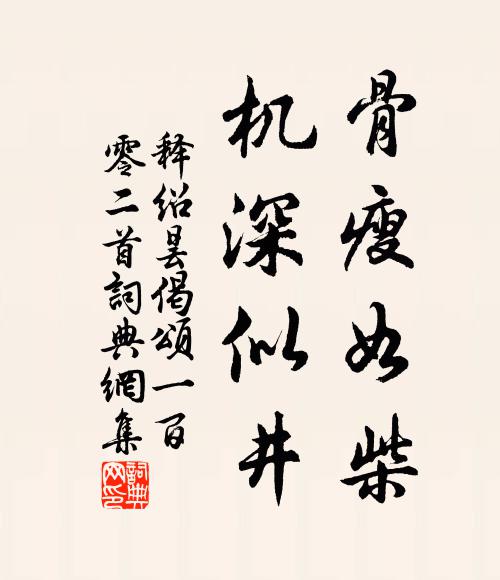 骨瘦如柴
机深似井
释绍昙偈颂一百
零二首詞典網集
詞典
网印